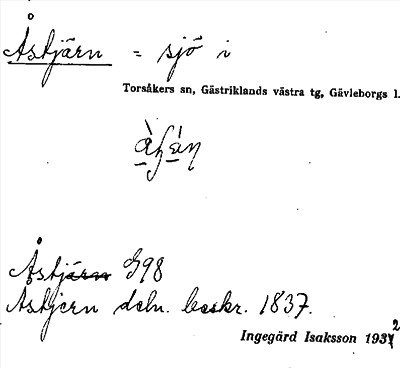 Åstjärn = sjö i
Torsåkers sn, Gästriklands västra tg, Gävleborgs l.
Åstjärn G98
Åstjern dcln. beskr. 1837.
Ingegärd Isaksson 1932